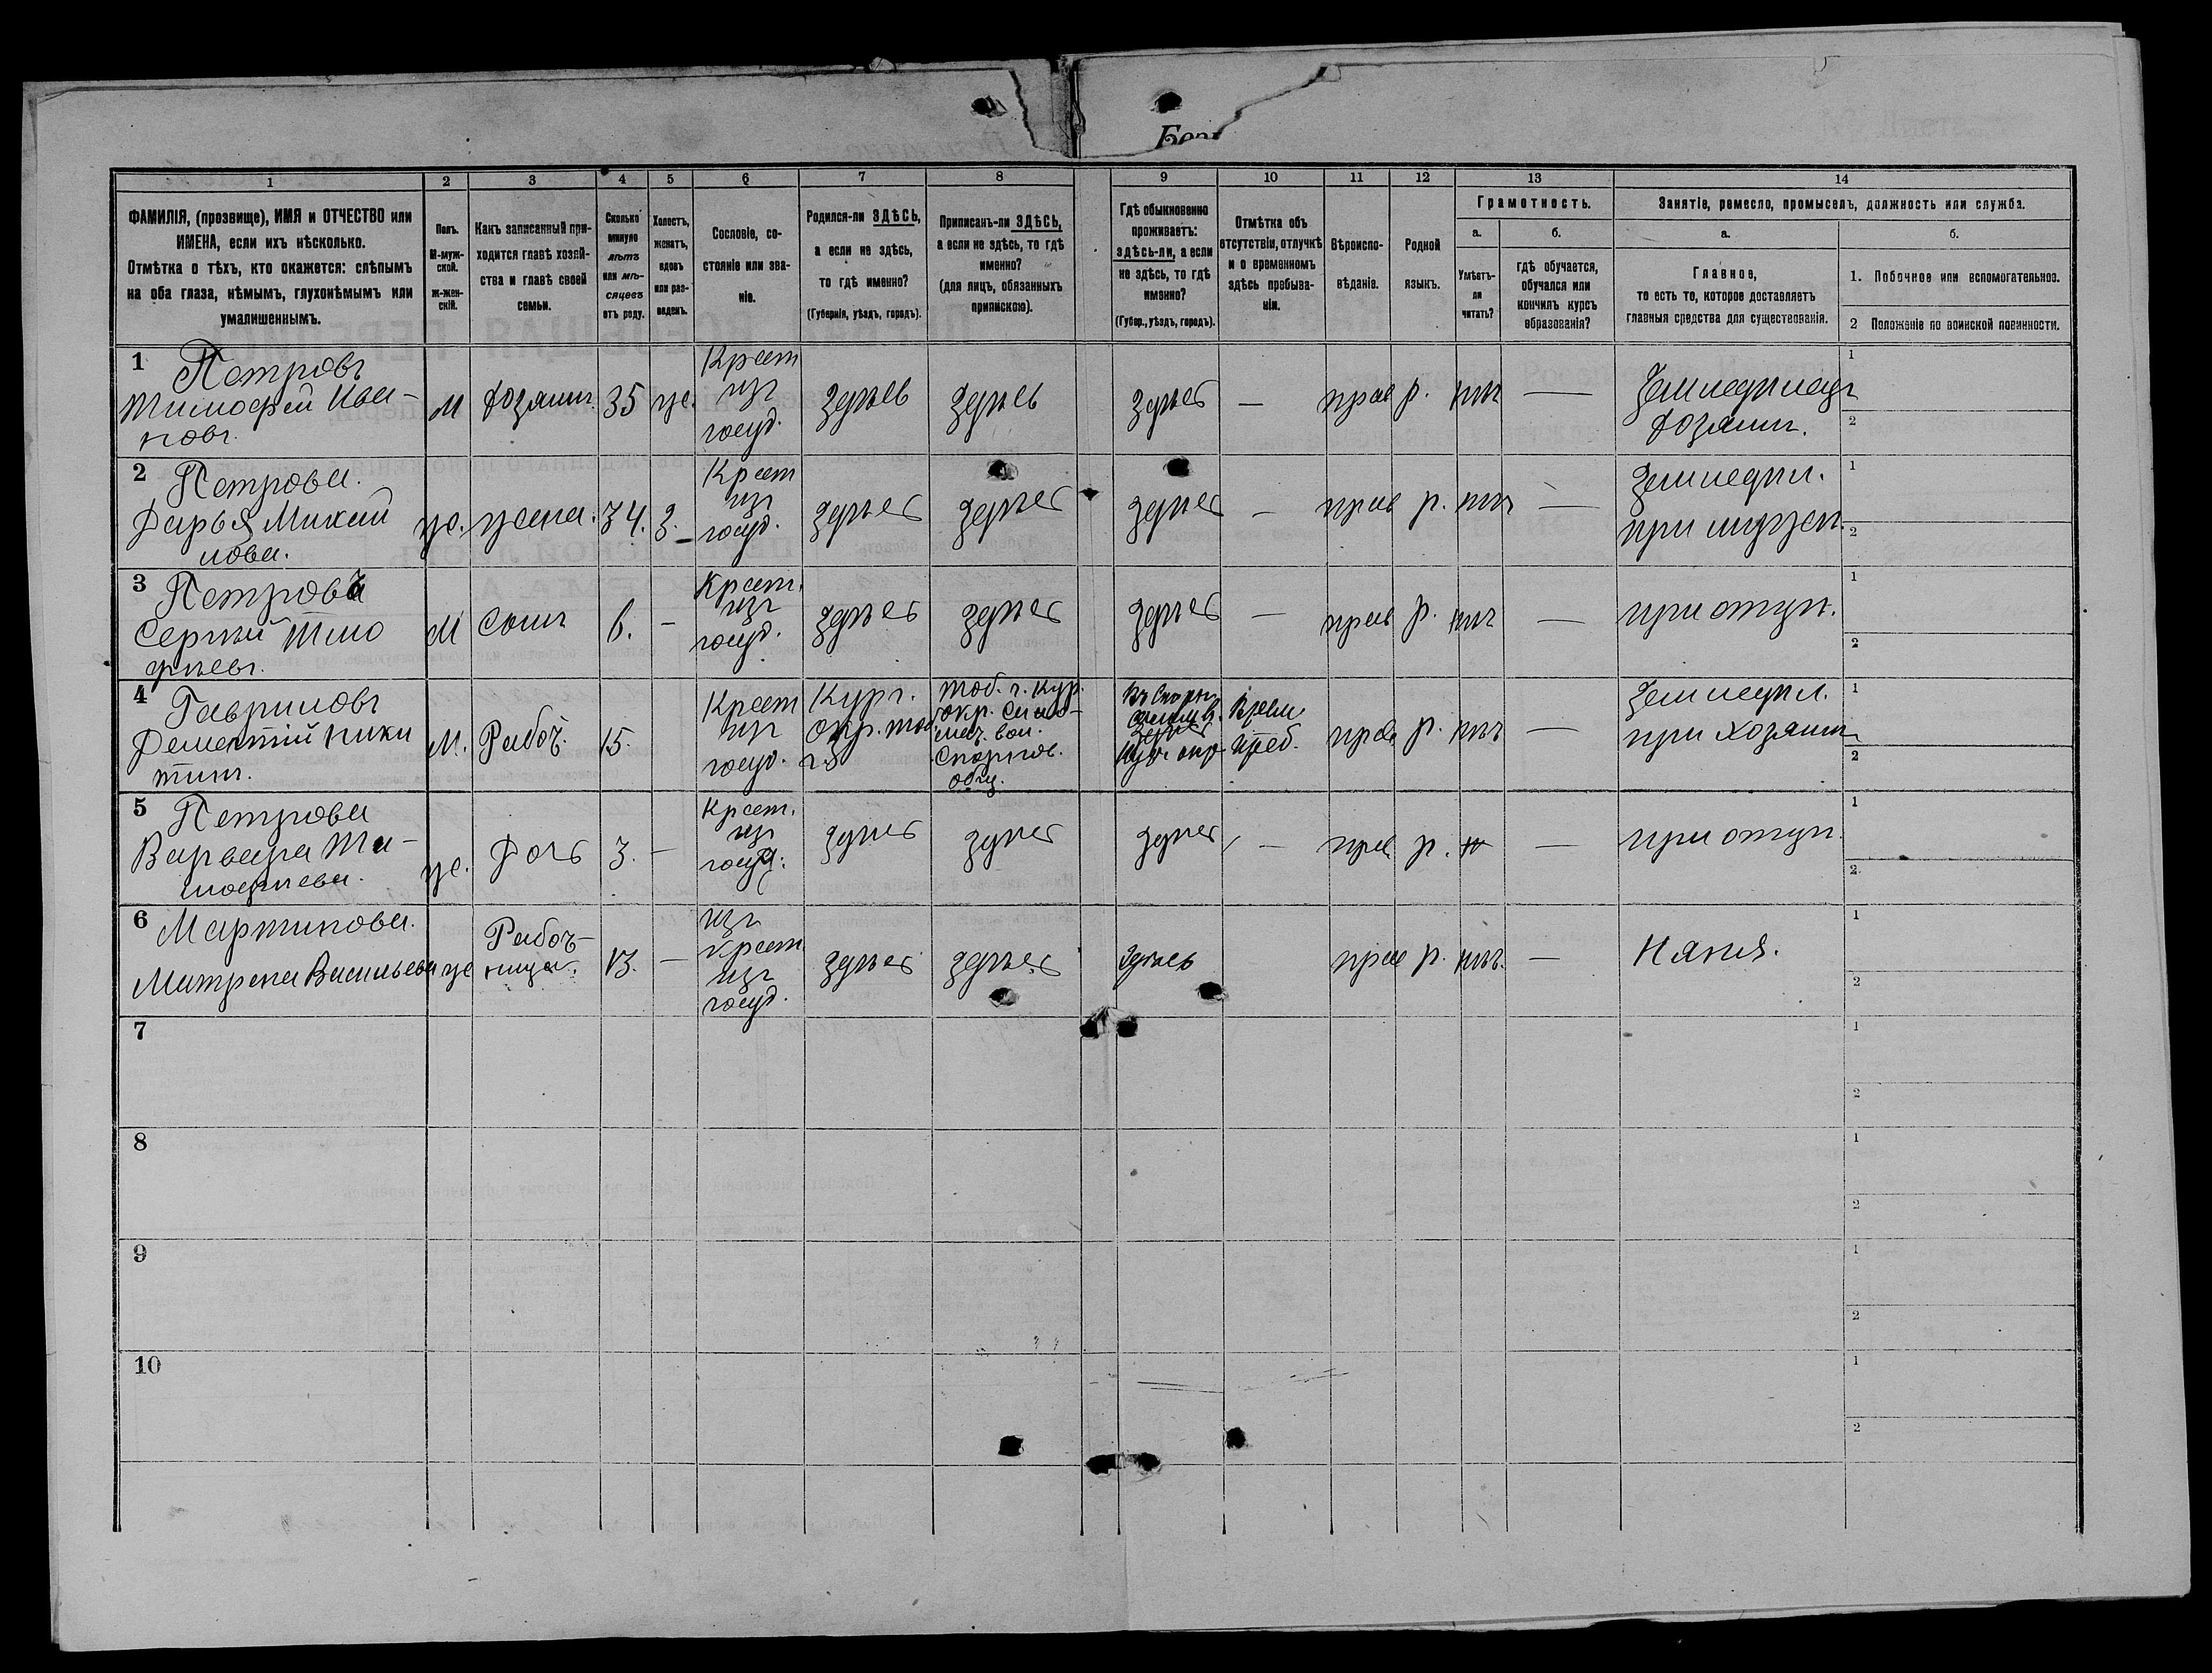 Безп
1 2 3 4 5 6 7 8 9 10 11 12 13 14
ФАМИЛІЯ, (прозвище), ИМЯ и ОТЧЕСТВО или
ИМЕНА, если ихъ нѣсколько.
Отмѣтка о тѣхъ, кто окажется: слѣпымъ
на оба глаза, нѣмымъ, глухонѣмымъ или
умалишеннымъ.
Полъ.
М-муж-
ской.
Ж-жен-
скій.
Какъ записанный при-
ходится главѣ хозяй-
ства и главѣ своей
семьи.
Сколько
минуло
лѣтъ
или мѣ-
сяцевъ
отъ роду.
Холостъ,
женатъ,
вдовъ
или раз-
веденъ.
Сословіе, со-
стояніе или зва-
ніе.
Родился-ли ЗДѢСЬ,
а если не здѣсь,
то гдѣ именно?
(Губернія, уѣздъ, городъ).
Приписанъ-ли ЗДѢСЬ,
а если не здѣсь, то гдѣ
именно?
(для лицъ, обязанныхъ
припискою).
Гдѣ обыкновенно
проживаетъ:
здѣсь-ли, а если
не здѣсь, то гдѣ
именно?
(Губер., уѣздъ, городъ).
Отмѣтка объ
отсутствіи, отлучкѣ
и о временномъ
здѣсь пребыва-
ніи.
Вѣроиспо-
вѣданіе.
Родной
языкъ.
Грамотность.
а.
Умѣетъ-
ли
читать?
б.
гдѣ обучается,
обучался или
кончилъ курсъ
образованія?
Занятіе, ремесло, промыселъ, должность или служба.
а.
Главное,
то есть то, которое доставляетъ
главныя средства для существованія.
б.
1. Побочное или вспомогательное.
2 Положеніе по воинской повинности.
1
Петровъ
Тимофей Ива-
новъ.
М
Хозяинъ.
35
же.
Крест
изъ
госуд.
здѣсь
здѣсь
здѣсь
—
прав
р.
нѣт
—
Земледѣлецъ
Хозяинъ.
1
2
2
Петрова.
Дарья Михай
лова.
же.
жена.
34.
З.
Крест
изъ
госуд.
здѣсь
здѣсь
здѣсь
—
прав
р.
нѣт
—
Земледѣл.
при мужѣ.
1
2
3
Петровъ
Сергѣй Тимо
фѣевъ.
М
Сынъ
6.
—
Крест.
изъ
госуд.
здѣсь
здѣсь
здѣсь
—
прав
р.
нѣт
—
при отцѣ.
1
2
4
Гавриловъ
Дементій Ники
тинъ.
М.
Рабоч.
15.
Крест
изъ
госуд.
Кург.
Окр. Тоб.
г.
Тоб. г. Кур.
Окр.
вол.
общ.
Врем.
преб.
прав
р.
нѣт
—
Земледѣл.
при Хозяинѣ
1
2
5
Петрова
Варвара Ти-
мофѣева.
же.
Дочь
3.
—
Крест.
изъ
госуд.
здѣсь
здѣсь
здѣсь
—
прав.
р.
н
—
при отцѣ.
1
2
6
Мартинова.
Матрена Васильева
же
Работ-
ница.
13.
—
изъ
крест
изъ
госуд.
здѣсь
здѣсь
здѣсь
прав
р.
нѣт.
—
Няня.
1
2
7
1
2
8
1
2
9
1
2
10
1
2